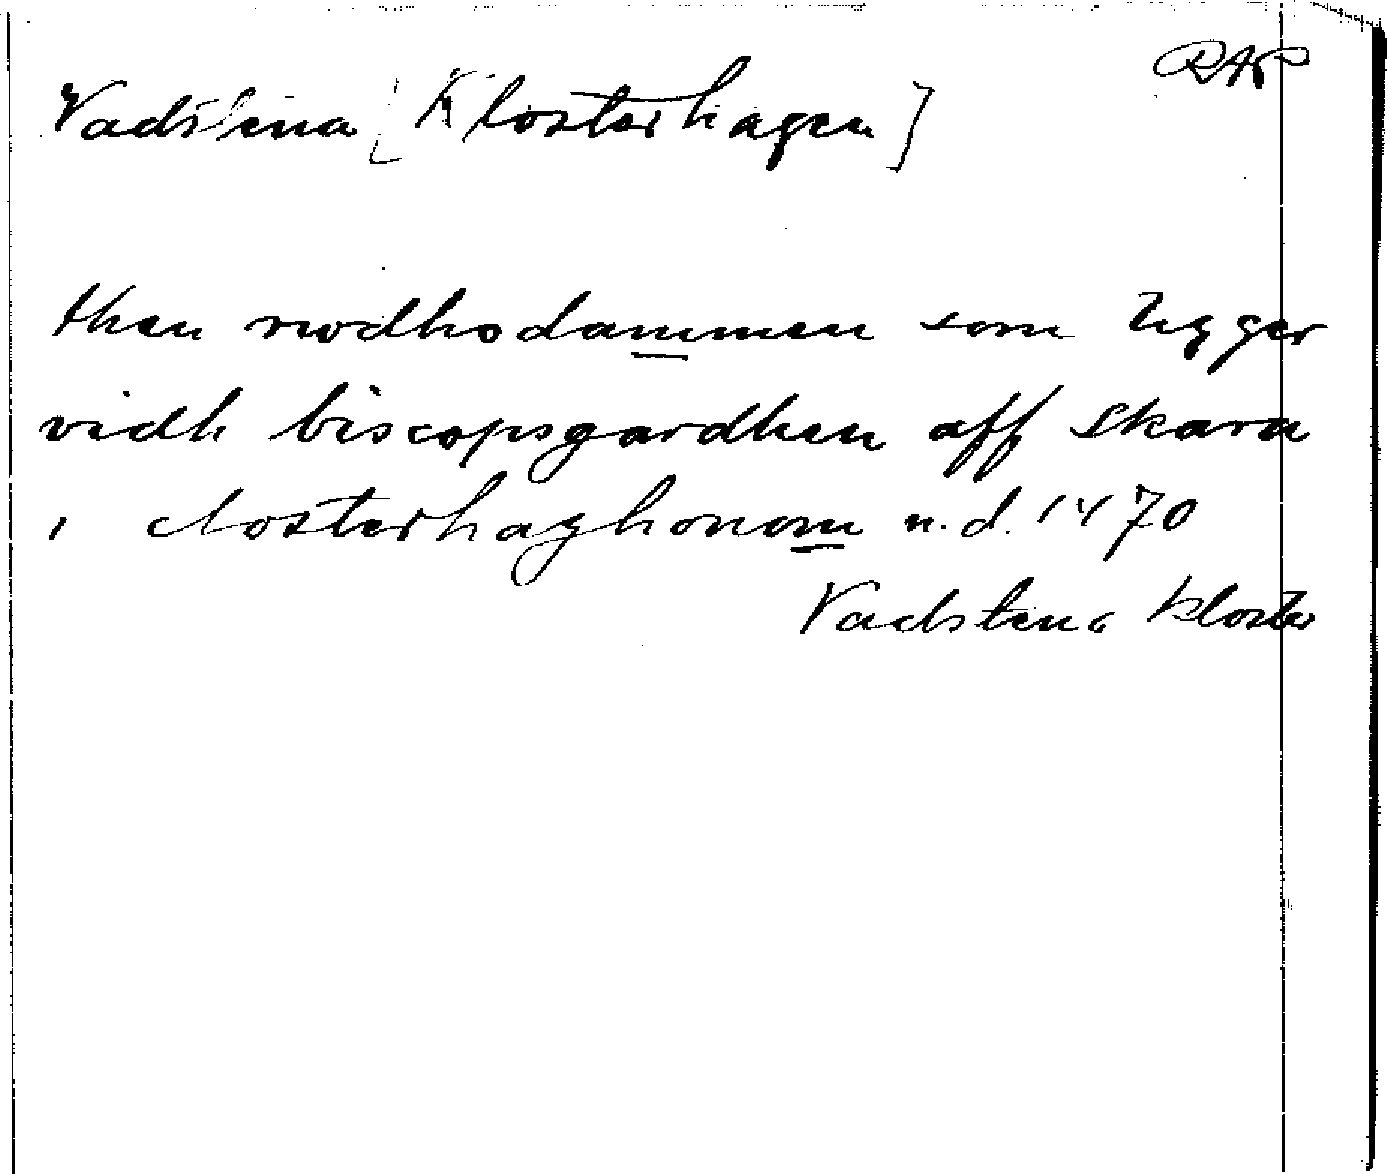 RAP
Vadstena [Klosterhagen]
then rwdhodammen som ligger
vidh biscopsgardhen aff skara
i closterhaghonom u.d. 1470
Vadstena kloster